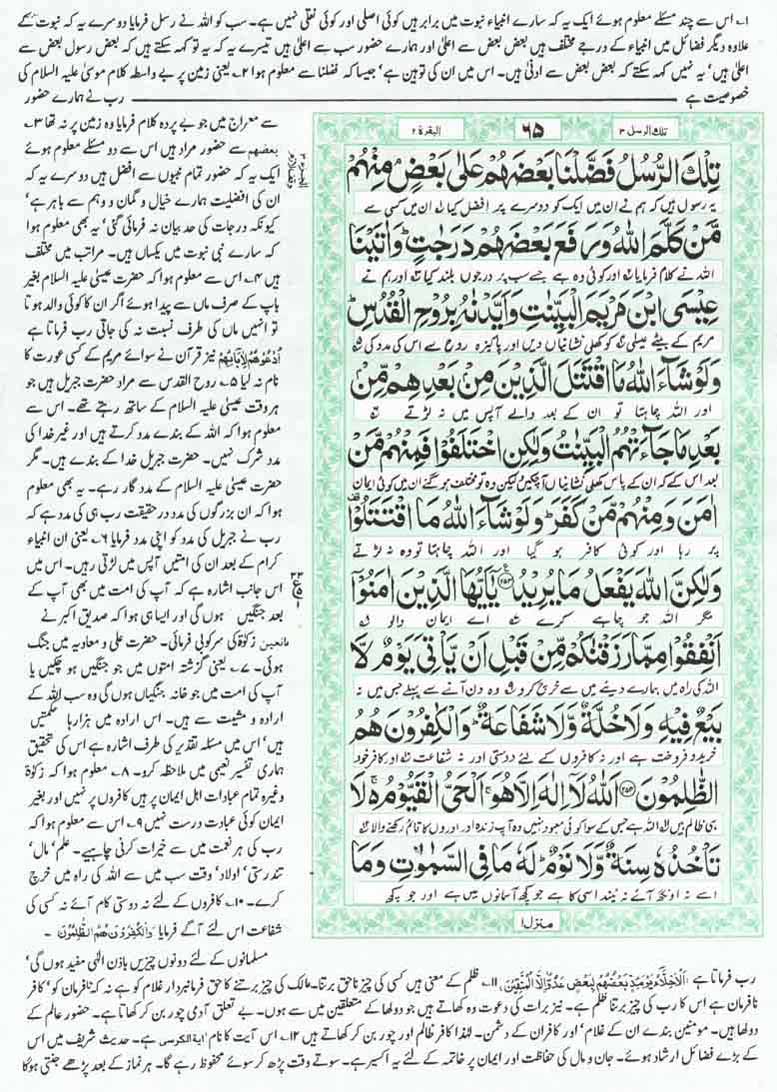 ۱؎ اس سے چند مسئلے معلوم ہوئے ایک یہ کہ سارے انبیاء نبوت میں برابر ہیں کوئی اصلی اور کوئی نقلی نہیں ہے۔ سب کو اللہ نے رسل فرمایا دوسرے یہ کہ نبوت کے
علاوہ دیگر فضائل میں انبیاء کے درجے مختلف ہیں بعض بعض سے اعلیٰ اور ہمارے حضور سب سے اعلیٰ ہیں تیسرے یہ کہ یہ تو کہہ سکتے ہیں کہ بعض رسول بعض سے
اعلیٰ ہیں' یہ نہیں کہہ سکتے کہ بعض بعض سے ادنیٰ ہیں۔ اس میں ان کی توہین ہے' جیسا کہ فضلنا سے معلوم ہوا ۲؎ یعنی زمین پر بے واسطہ کلام موسیٰ علیہ السلام کی
خصوصیت ہے رب نے ہمارے حضور
سے معراج میں جو بے پردہ کلام فرمایا وہ زمین پر نہ تھا ۳؎
بعضھم سے حضور مراد ہیں اس سے دو مسئلے معلوم ہوئے
ایک یہ کہ حضور تمام نبیوں سے افضل ہیں دوسرے یہ کہ
ان کی افضلیت ہمارے خیال و گمان و وہم سے باہر ہے'
کیونکہ درجات کی حد بیان نہ فرمائی گئی' یہ بھی معلوم ہوا
کہ سارے نبی نبوت میں یکساں ہیں۔ مراتب میں مختلف
ہیں ۴؎ اس سے معلوم ہوا کہ حضرت عیسیٰ علیہ السلام بغیر
باپ کے صرف ماں سے پیدا ہوئے اگر ان کا کوئی والد ہوتا
تو انہیں ماں کی طرف نسبت نہ کی جاتی رب فرماتا ہے
اُدْعُوْھُمْ لِاٰبَآئِھِمْ نیز قرآن نے سوائے مریم کے کسی عورت کا
نام نہ لیا ۵؎ روح القدس سے مراد حضرت جبریل ہیں جو
ہر وقت عیسیٰ علیہ السلام کے ساتھ رہتے تھے۔ اس سے
معلوم ہوا کہ اللہ کے بندے مدد کرتے ہیں اور غیر خدا کی
مدد شرک نہیں۔ حضرت جبریل خدا کے بندے ہیں۔ مگر
حضرت عیسیٰ علیہ السلام کے مدد گار رہے۔ یہ بھی معلوم
ہوا کہ ان بزرگوں کی مدد درحقیقت رب ہی کی مدد ہے کہ
رب نے جبریل کی مدد کو اپنی مدد فرمایا ۶؎ یعنی ان انبیاء
کرام کے بعد ان کی امتیں آپس میں لڑتی رہیں۔ اس میں
اس جانب اشارہ ہے کہ آپ کی امت میں بھی آپ کے
بعد جنگیں ہوں گی اور ایسا ہی ہوا کہ صدیق اکبر نے
مانعین زکوٰۃ کی سرکوبی فرمائی۔ حضرت علی و معاویہ میں جنگ
ہوئی۔ ۷؎ یعنی گزشتہ امتوں میں جو جنگیں ہو چکیں یا
آپ کی امت میں جو خانہ جنگیاں ہوں گی وہ سب اللہ کے
ارادہ و مشیت سے ہیں۔ اس ارادہ میں ہزارہا حکمتیں
ہیں' اس میں مسئلہ تقدیر کی طرف اشارہ ہے اس کی تحقیق
ہماری تفسیر نعیمی میں ملاحظہ کرو۔ ۸؎ معلوم ہوا کہ زکوٰۃ
وغیرہ تمام عبادات اہل ایمان پر ہیں کافروں پر نہیں اور بغیر
ایمان کوئی عبادت درست نہیں ۹؎ اس سے معلوم ہوا کہ
رب کی ہر نعمت میں سے خیرات کرنی چاہیے۔ علم' مال'
تندرستی' اولاد' وقت سب میں سے اللہ کی راہ میں خرچ
کرے۔ ۱۰؎ کافروں کے لئے نہ دوستی کام آئے نہ کسی کی
شفاعت اس لئے آگے فرمایا وَالْکٰفِرُوْنَ ھُمُ الظّٰلِمُوْنَ۔
مسلمانوں کے لئے دونوں چیزیں باذن الٰہی مفید ہوں گی'
تلك الرسل ۳ ۶۵ البقرة ۲
تِلْكَ الرُّسُلُ فَضَّلْنَا بَعْضَهُمْ عَلٰى بَعْضٍ مِنْهُمْ
یہ رسول ہیں کہ ہم نے ان میں ایک کو دوسرے پر افضل کیا ان میں کسی سے
مَّنْ كَلَّمَ اللّٰهُ وَرَفَعَ بَعْضَهُمْ دَرَجٰتٍ وَاٰتَيْنَا
اللہ نے کلام فرمایا اور کوئی وہ ہے جسے سب پر درجوں بلند کیا اور ہم نے
عِيْسَى ابْنَ مَرْيَمَ الْبَيِّنٰتِ وَاَيَّدْنٰهُ بِرُوْحِ الْقُدُسِ
مریم کے بیٹے عیسیٰ کو کھلی نشانیاں دیں اور پاکیزہ روح سے اس کی مدد کی
وَلَوْ شَآءَ اللّٰهُ مَا اقْتَتَلَ الَّذِيْنَ مِنْ بَعْدِهِمْ مِّنْ
اور اللہ چاہتا تو ان کے بعد والے آپس میں نہ لڑتے
بَعْدِ مَا جَآءَتْهُمُ الْبَيِّنٰتُ وَلٰكِنِ اخْتَلَفُوْا فَمِنْهُمْ مَّنْ
بعد اس کے کہ ان کے پاس کھلی نشانیاں آچکیں لیکن وہ تو مختلف ہو گئے ان میں کوئی ایمان
اٰمَنَ وَمِنْهُمْ مَّنْ كَفَرَ وَلَوْ شَآءَ اللّٰهُ مَا اقْتَتَلُوْا
پر رہا اور کوئی کافر ہو گیا اور اللہ چاہتا تو وہ نہ لڑتے
وَلٰكِنَّ اللّٰهَ يَفْعَلُ مَا يُرِيْدُ ۲۵۳ يٰٓاَيُّهَا الَّذِيْنَ اٰمَنُوْٓا
مگر اللہ جو چاہے کرے اے ایمان والو
اَنْفِقُوْا مِمَّا رَزَقْنٰكُمْ مِّنْ قَبْلِ اَنْ يَّاْتِيَ يَوْمٌ لَّا
اللہ کی راہ میں ہمارے دیئے میں سے خرچ کرو وہ دن آنے سے پہلے جس میں نہ
بَيْعٌ فِيْهِ وَلَا خُلَّةٌ وَّلَا شَفَاعَةٌ وَالْكٰفِرُوْنَ هُمُ
خرید و فروخت ہے اور نہ کافروں کے لئے دوستی اور نہ شفاعت اور کافر خود
الظّٰلِمُوْنَ ۲۵۴ اَللّٰهُ لَآ اِلٰهَ اِلَّا هُوَ اَلْحَيُّ الْقَيُّوْمُ لَا
ہی ظالم ہیں اللہ ہے جس کے سوا کوئی معبود نہیں وہ آپ زندہ اور اوروں کا قائم رکھنے والا
تَاْخُذُهٗ سِنَةٌ وَّلَا نَوْمٌ لَهٗ مَا فِى السَّمٰوٰتِ وَمَا
اسے نہ اونگھ آئے نہ نیند اسی کا ہے جو کچھ آسمانوں میں ہے اور جو کچھ
منزل۱
رب فرماتا ہے اَلْاَخِلَّآءُ یَوْمَئِذٍۭ بَعْضُھُمْ لِبَعْضٍ عَدُوٌّ اِلَّا الْمُتَّقِیْنَ ۱۱؎ ظلم کے معنی ہیں کسی کی چیز ناحق برتنا۔ مالک کی چیز برتنے کا حق فرمانبردار غلام کو ہے نہ کہ نافرمان کو' کافر
نافرمان ہے اس کا رب کی چیز برتنا ظلم ہے۔ نیز برات کی دعوت وہ کھاتے ہیں جو دولہا کے متعلقین میں سے ہوں۔ بے تعلق آدمی چور بن کر کھاتا ہے۔ حضور عالم کے
دولھا ہیں۔ مومنین بندے ان کے غلام' اور کافر ان کے دشمن۔ لہٰذا کافر ظالم اور چور بن کر کھاتے ہیں ۱۲؎ اس آیت کا نام ایۃ الکرسی ہے۔ حدیث شریف میں اس
کے بڑے فضائل ارشاد ہوئے۔ جان و مال کی حفاظت اور ایمان پر خاتمہ کے لئے یہ اکسیر ہے۔ سوتے وقت پڑھ کر سوئے محفوظ رہے گا۔ ہر نماز کے بعد پڑھے جنتی ہوگا